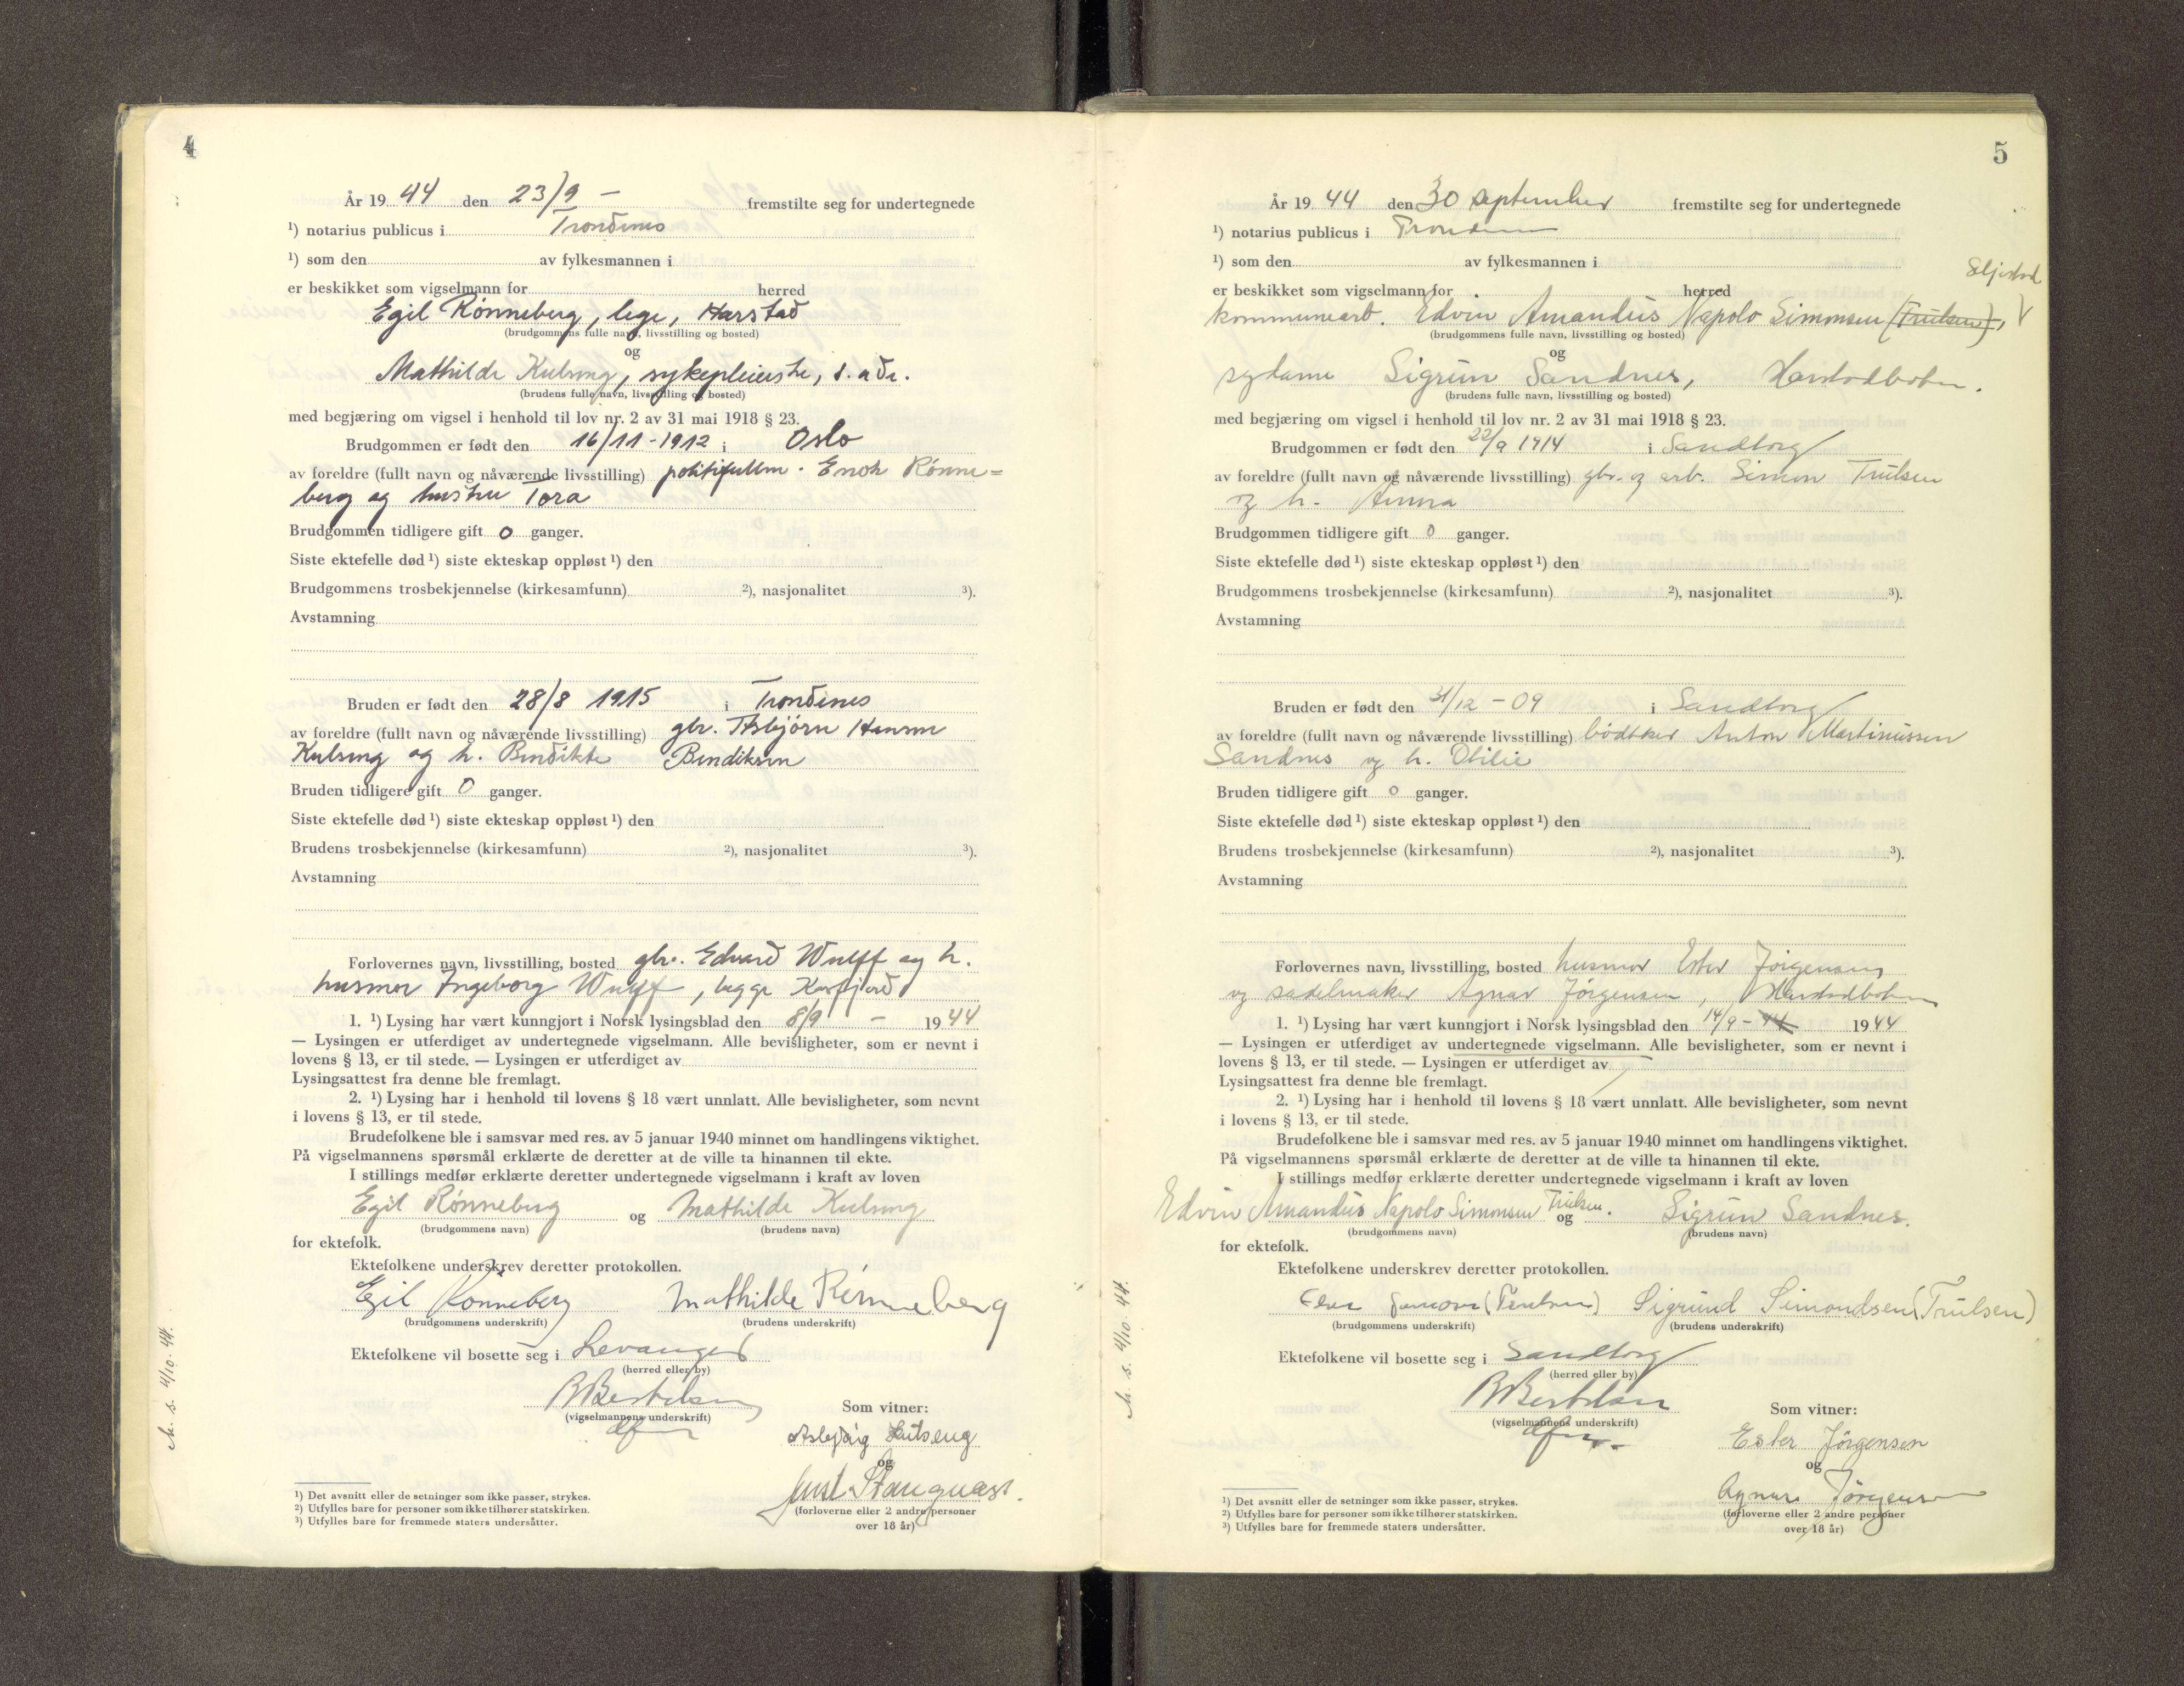 4
År 19 44 den 23/9 – fremstilte seg for undertegnede
¹) notarius publicus i Trondenes
¹) som den av fylkesmannen i
er beskikket som vigselmann for herred
Egil Rønneberg, lege, Harstad
(brudgommens fulle navn, livsstilling og bosted)
og
Mathilde Kulseng, sykepleierske, s. adr.
(brudens fulle navn, livsstilling og bosted)
med begjæring om vigsel i henhold til lov nr. 2 av 31 mai 1918 § 23.
Brudgommen er født den 16/11-1912 i Oslo
av foreldre (fullt navn og nåværende livsstilling) politifullm. Enok Rønne=
berg og hustru Tora
Brudgommen tidligere gift 0 ganger.
Siste ektefelle død ¹) siste ekteskap oppløst ¹) den
Brudgommens trosbekjennelse (kirkesamfunn) ²), nasjonalitet ³).
Avstamning
Bruden er født den 28/8 1915 i Trondenes
av foreldre (fullt navn og nåværende livsstilling) gbr. Asbjørn Hansen
Kulseng og h. Bendikte Bendiksen
Bruden tidligere gift 0 ganger.
Siste ektefelle død ¹) siste ekteskap oppløst ¹) den
Brudens trosbekjennelse (kirkesamfunn) ²), nasjonalitet ³).
Avstamning
Forlovernes navn, livsstilling, bosted gbr. Edvard Wulff og h.
husmor Ingeborg Wulff, begge Kasfjord
1. ¹) Lysing har vært kunngjort i Norsk lysingsblad den 8/9 – 19 44
— Lysingen er utferdiget av undertegnede vigselmann. Alle bevisligheter, som er nevnt i
lovens § 13, er til stede. — Lysingen er utferdiget av
Lysingsattest fra denne ble fremlagt.
2. ¹) Lysing har i henhold til lovens § 18 vært unnlatt. Alle bevisligheter, som nevnt
i lovens § 13, er til stede.
Brudefolkene ble i samsvar med res. av 5 januar 1940 minnet om handlingens viktighet.
På vigselmannens spørsmål erklærte de deretter at de ville ta hinannen til ekte.
I stillings medfør erklærte deretter undertegnede vigselmann i kraft av loven
Egil Rønneberg og Mathilde Kulseng
(brudgommens navn) (brudens navn)
for ektefolk.
Ektefolkene underskrev deretter protokollen.
Egil Rønneberg Mathilde Rønneberg
(brudgommens underskrift) (brudens underskrift)
Ektefolkene vil bosette seg i Levanger
(herred eller by)
B Bertelsen
(vigselmannens underskrift)
Som vitner:
Asbjørg Kulseng
og
Just Stangnæss.
(forloverne eller 2 andre personer
over 18 år)
¹) Det avsnitt eller de setninger som ikke passer, strykes.
²) Utfylles bare for personer som ikke tilhører statskirken.
³) Utfylles bare for fremmede staters undersåtter.
M. s. 4/10. 44.
5
År 19 44 den 30 september fremstilte seg for undertegnede
¹) notarius publicus i Trondenes
¹) som den av fylkesmannen i
er beskikket som vigselmann for herred
kommunearb. Edvin Amandus Napolo Simonsen (Trulsen),
(brudgommens fulle navn, livsstilling og bosted)
og
sydame Sigrun Sandnes, Harstadbotn.
(brudens fulle navn, livsstilling og bosted)
med begjæring om vigsel i henhold til lov nr. 2 av 31 mai 1918 § 23.
Brudgommen er født den 22/9 1914 i Sandtorg
av foreldre (fullt navn og nåværende livsstilling) gbr. og arb. Simon Trulsen
og h. Anna
Brudgommen tidligere gift 0 ganger.
Siste ektefelle død ¹) siste ekteskap oppløst ¹) den
Brudgommens trosbekjennelse (kirkesamfunn) ²), nasjonalitet ³).
Avstamning
Bruden er født den 31/12 – 09 i Sandtorg
av foreldre (fullt navn og nåværende livsstilling) bødtker Anton Martinussen
Sandnes og h. Otilie
Bruden tidligere gift 0 ganger.
Siste ektefelle død ¹) siste ekteskap oppløst ¹) den
Brudens trosbekjennelse (kirkesamfunn) ²), nasjonalitet ³).
Avstamning
Forlovernes navn, livsstilling, bosted husmor Ester Jørgensen
og sadelmaker Agnar Jørgensen, Harstadbotn
1. ¹) Lysing har vært kunngjort i Norsk lysingsblad den 14/9 – 44 19 44
— Lysingen er utferdiget av undertegnede vigselmann. Alle bevisligheter, som er nevnt i
lovens § 13, er til stede. — Lysingen er utferdiget av
Lysingsattest fra denne ble fremlagt.
2. ¹) Lysing har i henhold til lovens § 18 vært unnlatt. Alle bevisligheter, som nevnt
i lovens § 13, er til stede.
Brudefolkene ble i samsvar med res. av 5 januar 1940 minnet om handlingens viktighet.
På vigselmannens spørsmål erklærte de deretter at de ville ta hinannen til ekte.
I stillings medfør erklærte deretter undertegnede vigselmann i kraft av loven
Edvin Amandus Napolo Simonsen Trulsen. og Sigrun Sandnes.
(brudgommens navn) (brudens navn)
for ektefolk.
Ektefolkene underskrev deretter protokollen.
(Trulsen) Sigrund Simondsen (Trulsen)
(brudgommens underskrift) (brudens underskrift)
Ektefolkene vil bosette seg i Sandtorg
(herred eller by)
B Bertelsen
(vigselmannens underskrift)
Som vitner:
Ester Jørgensen
og
Agnar Jørgensen
(forloverne eller 2 andre personer
over 18 år)
¹) Det avsnitt eller de setninger som ikke passer, strykes.
²) Utfylles bare for personer som ikke tilhører statskirken.
³) Utfylles bare for fremmede staters undersåtter.
M. s. 4/10. 44.